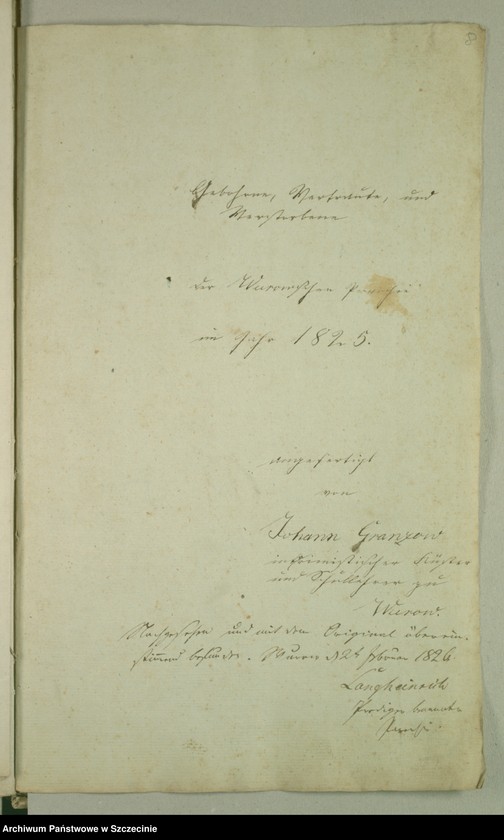 8
Gebohrne, Vertraute, und
Verstorbene
der Wurowschen Parochie
im Jahr 1825.
angefertigt
von
Johann Granzow
interimistischer Küster
und Schullehrer zu
Wurow.
Nachgesehen und mit dem Original überein-
stimmend befunden. Wurow d 2t Februar 1826
Langheinrich
Prediger
Parochie
Archiwum Państwowe w Szczecinie